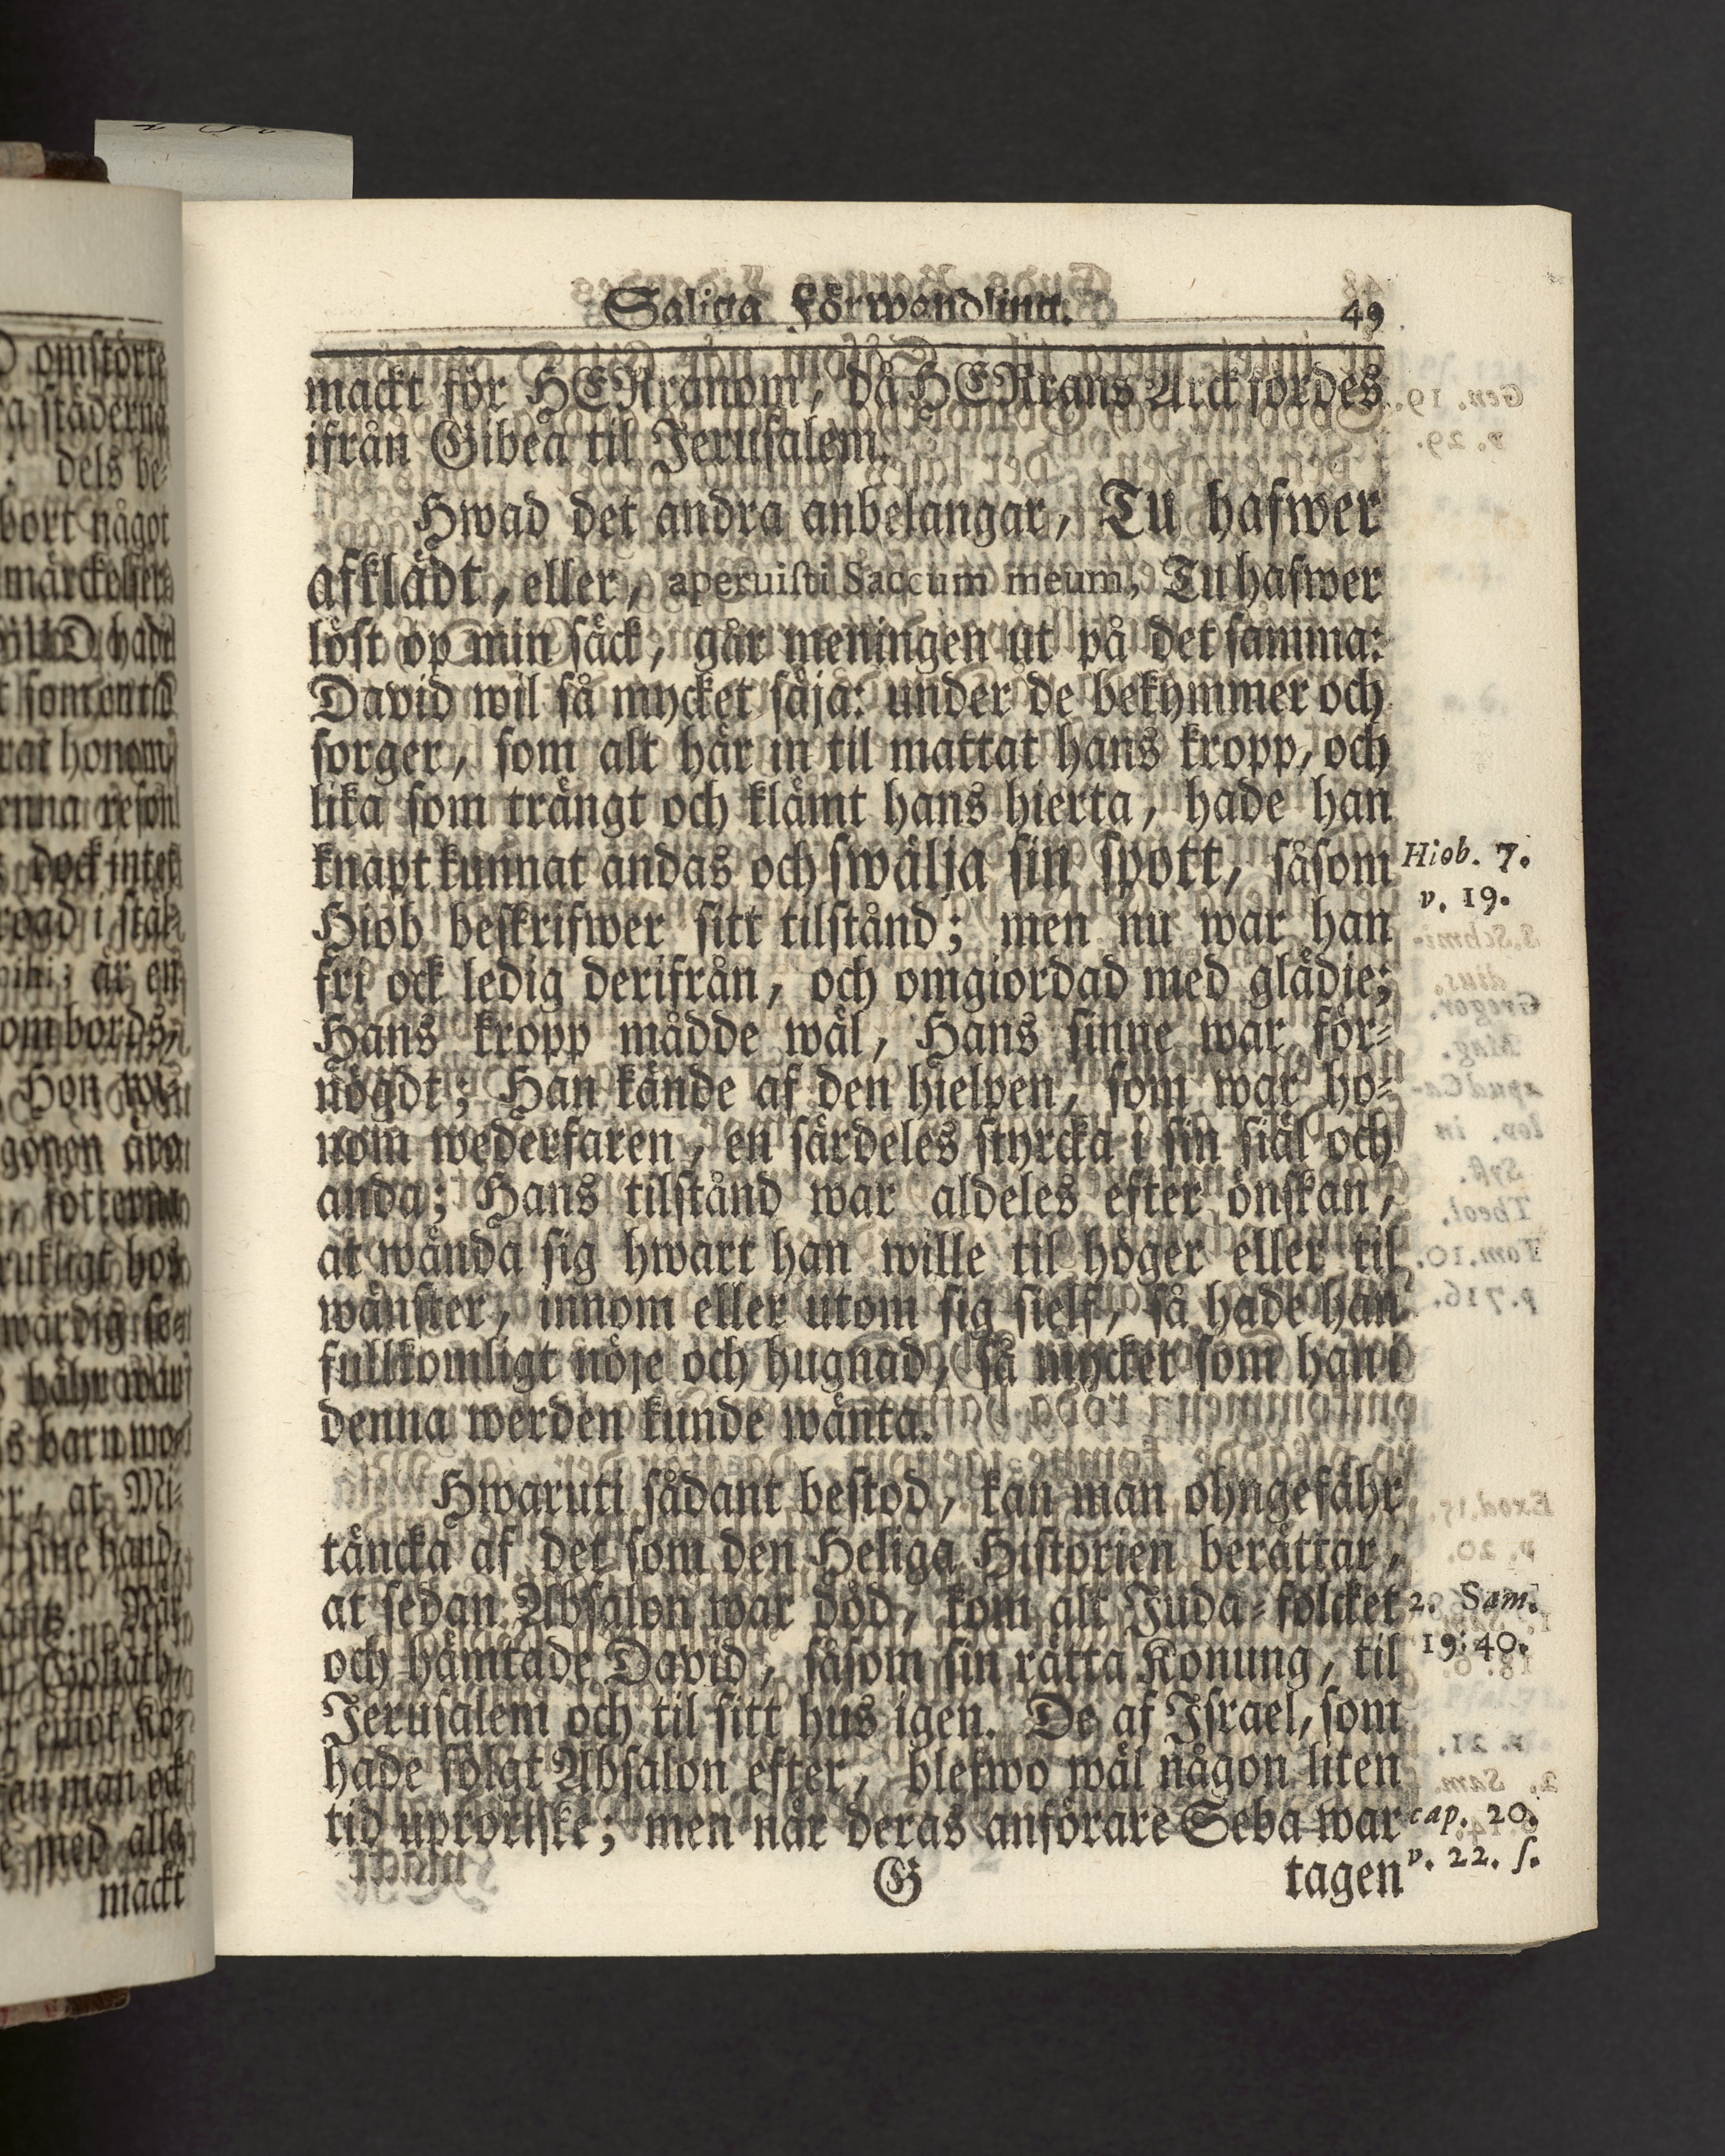 Saliga Förwandling. 49
mackt för HERranom, då HERrans Arck fördes
ifrån Gibea til Jerusalem.
Hwad det andra anbelangar, Tu hafwer
afklädt, eller, aperuisti Saccum meum, Tu hafwer
löst op min säck, går meningen ut på det samma:
David wil så mycket säja: under de bekymmer och
sorger, som alt här in til mattat hans kropp, och
lika som trängt och klämt hans hierta, hade han
knapt kunnat andas och swälja sin spott, såsom
Hiob. 7.
v. 19.
Hiob beskrifwer sitt tilstånd; men nu war han
fri ock ledig derifrån, och omgiordad med glädie;
Hans kropp mådde wäl, Hans sinne war för-
nögdt; Han kände af den hielpen, som war ho-
nom wederfaren, en särdeles styrcka i sin siäl och
anda; Hans tilstånd war aldeles efter önskan,
at wända sig hwart han wille til höger eller til
wänster, innom eller utom sig sielf, så hade han
fullkomligt nöje och hugnad, så mycket som han i
denna werden kunde wänta.
Hwaruti sådant bestod, kan man ohngefähr
täncka af det som den Heliga Historien berättar,
at sedan Absalon war död, kom alt Juda-folcket
2. Sam.
19: 40.
och hämtade David, såsom sin rätta Konung, til
Jerusalem och til sitt hus igen. De af Israel, som
hade fölgt Absalon efter, blefwo wäl någon liten
tid uproriske; men när deras anförare Seba war
cap. 20.
v. 22. s.
G tagen
mackt